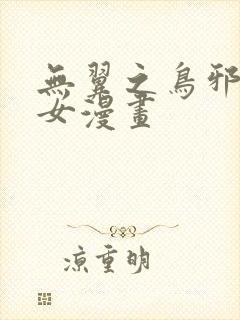 無翼之鳥邪
女漫畫
涼重明